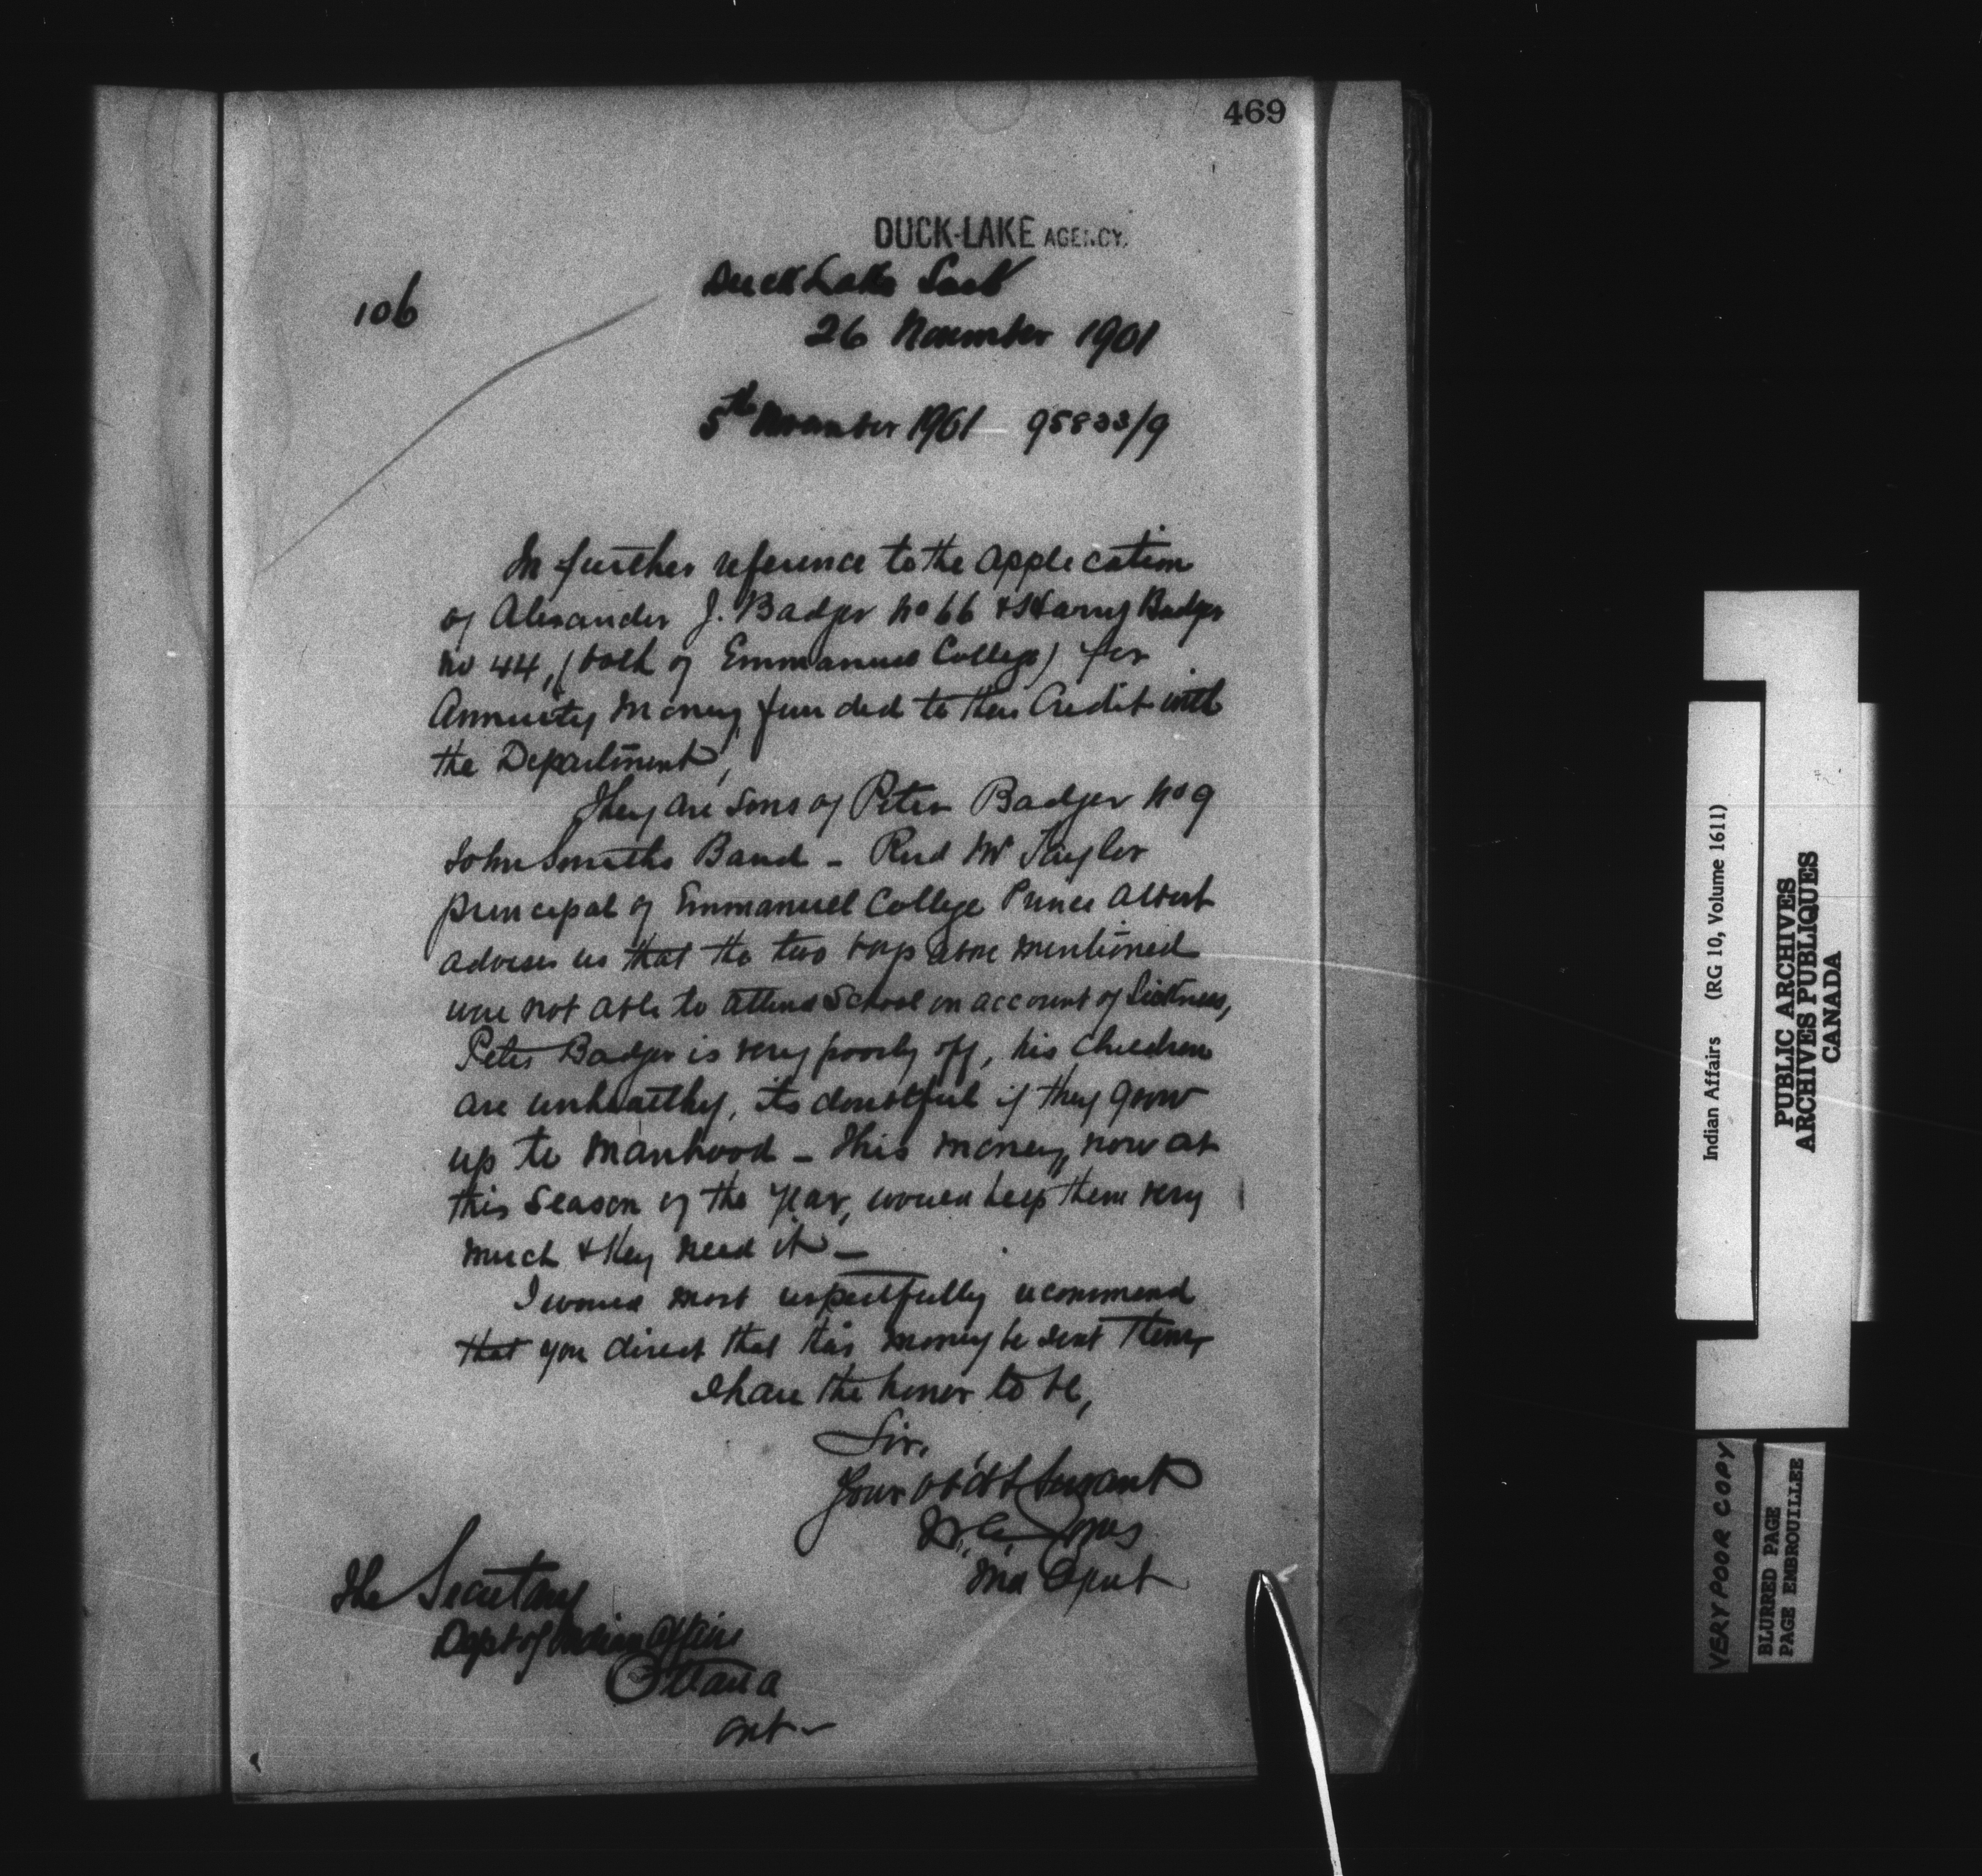 469
DUCK-LAKE AGENCY.
106
Duck Lake Sask
26 November 1901
5th November 1901 — 95833/9
In further reference to the application
of Alexander J. Badger No 66 & Harry Badger
No 44, (both of Emmanuel College) for
Annuity Money funded to their Credit with
the Department,
They are sons of Peter Badger No 9
John Smiths Band - Revd Mr Taylor
principal of Emmanuel College Prince Albert
advises us that the two boys above mentioned
were not able to attend School on account of Sickness,
Peter Badger is very poorly off, his children
are unhealthy, its doubtful if they grow
up to manhood - This money, now at
this season of the year, would help them very
much & they need it -
I would most respectfully recommend
that you direct that this money be sent them
I have the honor to be,
Sir,
Your obdt Servant
Ind Agent
The Secretary
Dept of Indian Affairs
Ottawa
Ont -
Indian Affairs (RG 10, Volume 1611)
PUBLIC ARCHIVES
ARCHIVES PUBLIQUES
CANADA
VERY POOR COPY
BLURRED PAGE
PAGE EMBROUILLEE